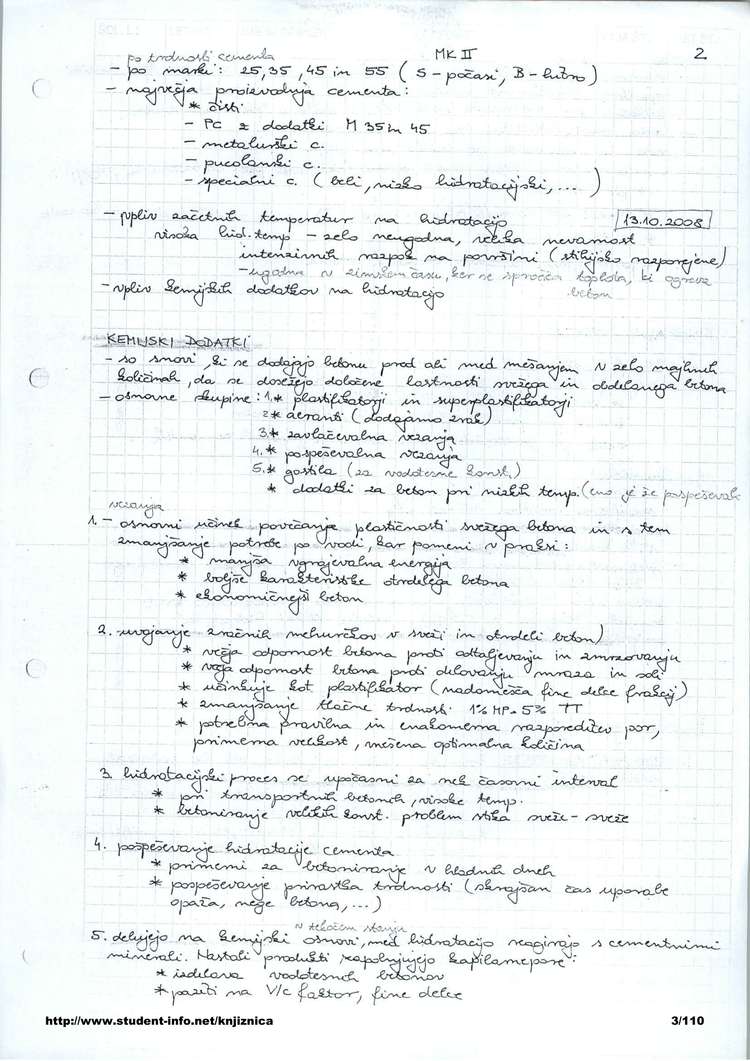 MK II 2
po trdnosti cementa
- po marki: 25, 35, 45 in 55 (S - počasi, B - hitro)
- največja proizvodnja cementa:
* čisti
- PC z dodatki M 35 in 45
- metalurški c.
- pucolanski c.
- specialni c. (beli, nizko hidratacijski, ...)
- vpliv začetnih temperatur na hidratacijo 13.10.2008
visoka hid. temp - zelo neugodna, velika nevarnost
intenzivnih razpok na površini (stihijsko razporejene)
- ugodna v zimskem času, ker se sprošča toplota, ki ogreva
beton
- vpliv kemijskih dodatkov na hidratacijo
KEMIJSKI DODATKI
- so snovi, ki se dodajajo betonu pred ali med mešanjem v zelo majhnih
količinah, da se dosežejo določene lastnosti svežega in obdelanega betona
- osnovne skupine: 1.* plastifikatorji in superplastifikatorji
2.* aeranti (dodajamo zrak)
3.* zavlačevalna vezanja
4.* pospeševalna vezanja
5.* gostila (za vodotesne konst.)
* dodatki za beton pri nizkih temp. (eno je že pospeševalc
vezanja
1. - osnovni učinek povečanje plastičnosti svežega betona in s tem
zmanjšanje potrebe po vodi, kar pomeni v praksi:
* manjša vgrajevalna energija
* boljše karakteristike otrdelega betona
* ekonomičnejši beton
2. uvajanje zračnih mehurčkov v sveži in otrdeli beton)
* večja odpornost betona proti odtaljevanju in zmrzovanju
* večja odpornost betona proti delovanju mraza in soli
* učinkuje kot plastifikator (nadomešča fine delce frakcij)
* zmanjšanje tlačne trdnosti. 1% MP = 5% TT
* potrebna pravilna in enakomerna razporeditev por,
primerna velikost, mešena optimalna količina
3. hidratacijski proces se upočasni za nek časovni interval
* pri transportnih betonih, visoke temp.
* betoniranje velikih konst. problem stika sveže - sveže
4. pospeševanje hidratacije cementa
* primerni za betoniranje v hladnih dneh
* pospeševanje prirastka trdnosti (skrajšan čas uporabe
opaža, nege betona, ...)
v tekočem stanju
5. delujejo na kemijski osnovi, med hidratacijo reagirajo s cementnimi
minerali. Nastali produkti zapolnjujejo kapilarne pore:
* izdelava vodotesnih betonov
* paziti na V/C faktor, fine delce
http://www.student-info.net/knjiznica 3/110